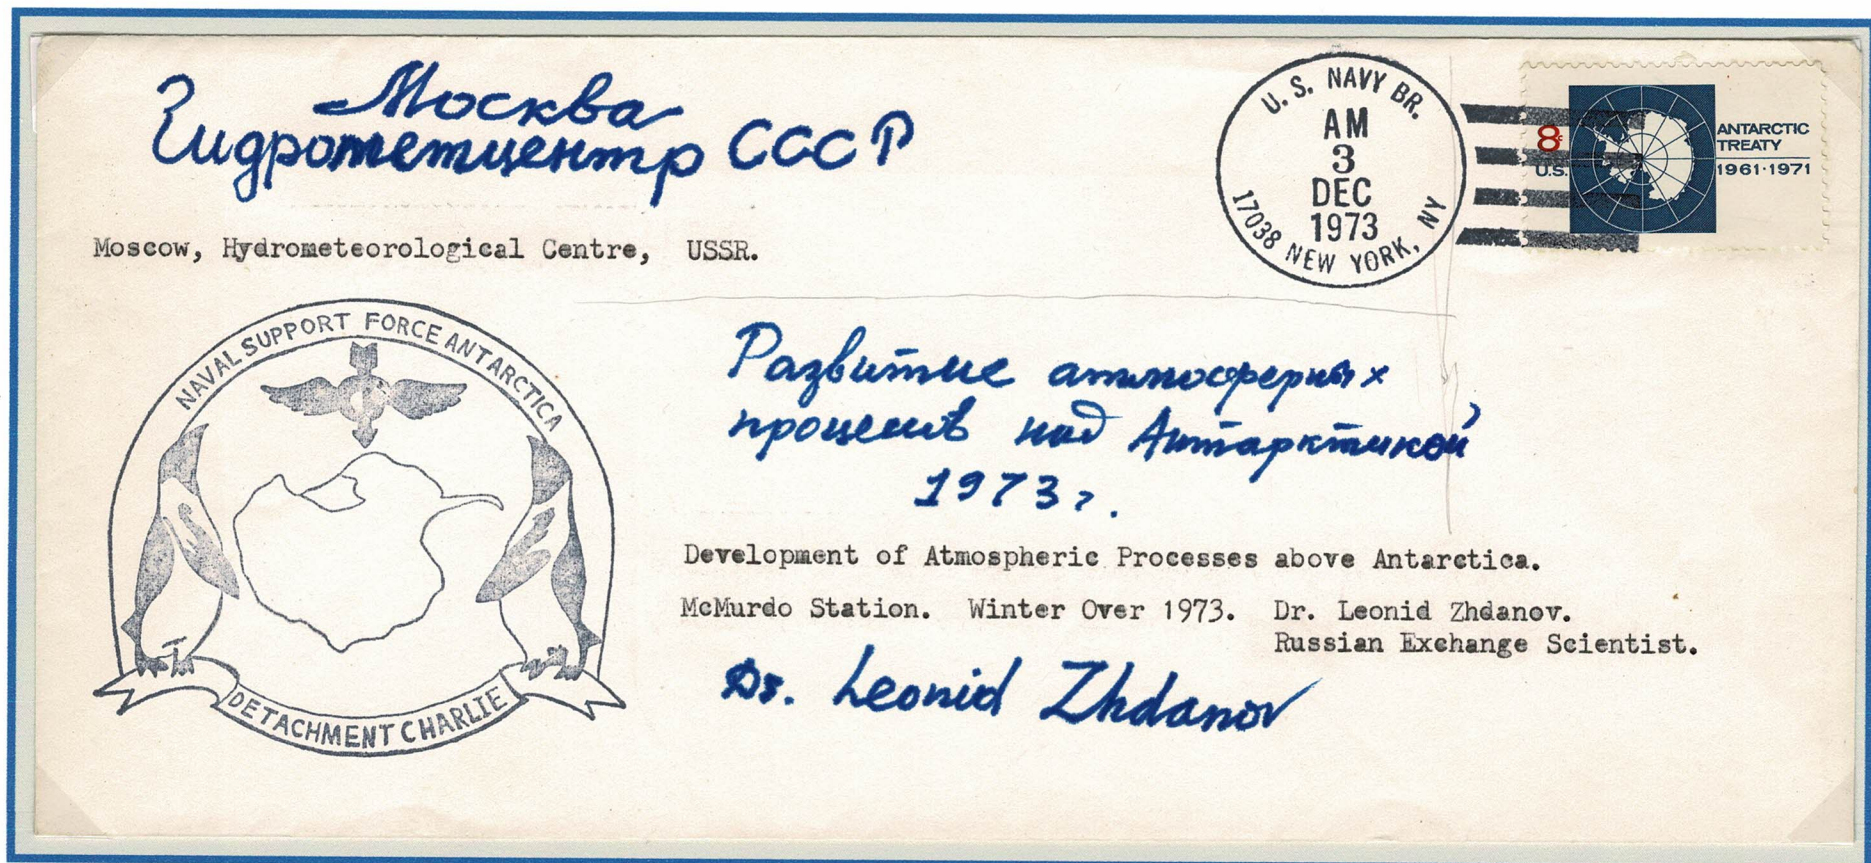 Москва
Гидрометцентр СССР
Moscow, Hydrometeorological Centre, USSR.
U. S. NAVY BR.
AM
3
DEC
1973
17038 NEW YORK, NY
8c
U.S.
ANTARCTIC
TREATY
1961·1971
NAVAL SUPPORT FORCE ANTARCTICA
DETACHMENT CHARLIE
Развитие атмосферных
процессов над Антарктикой
1973 г.
Development of Atmospheric Processes above Antarctica.
McMurdo Station. Winter Over 1973. Dr. Leonid Zhdanov.
Russian Exchange Scientist.
Dr. Leonid Zhdanov